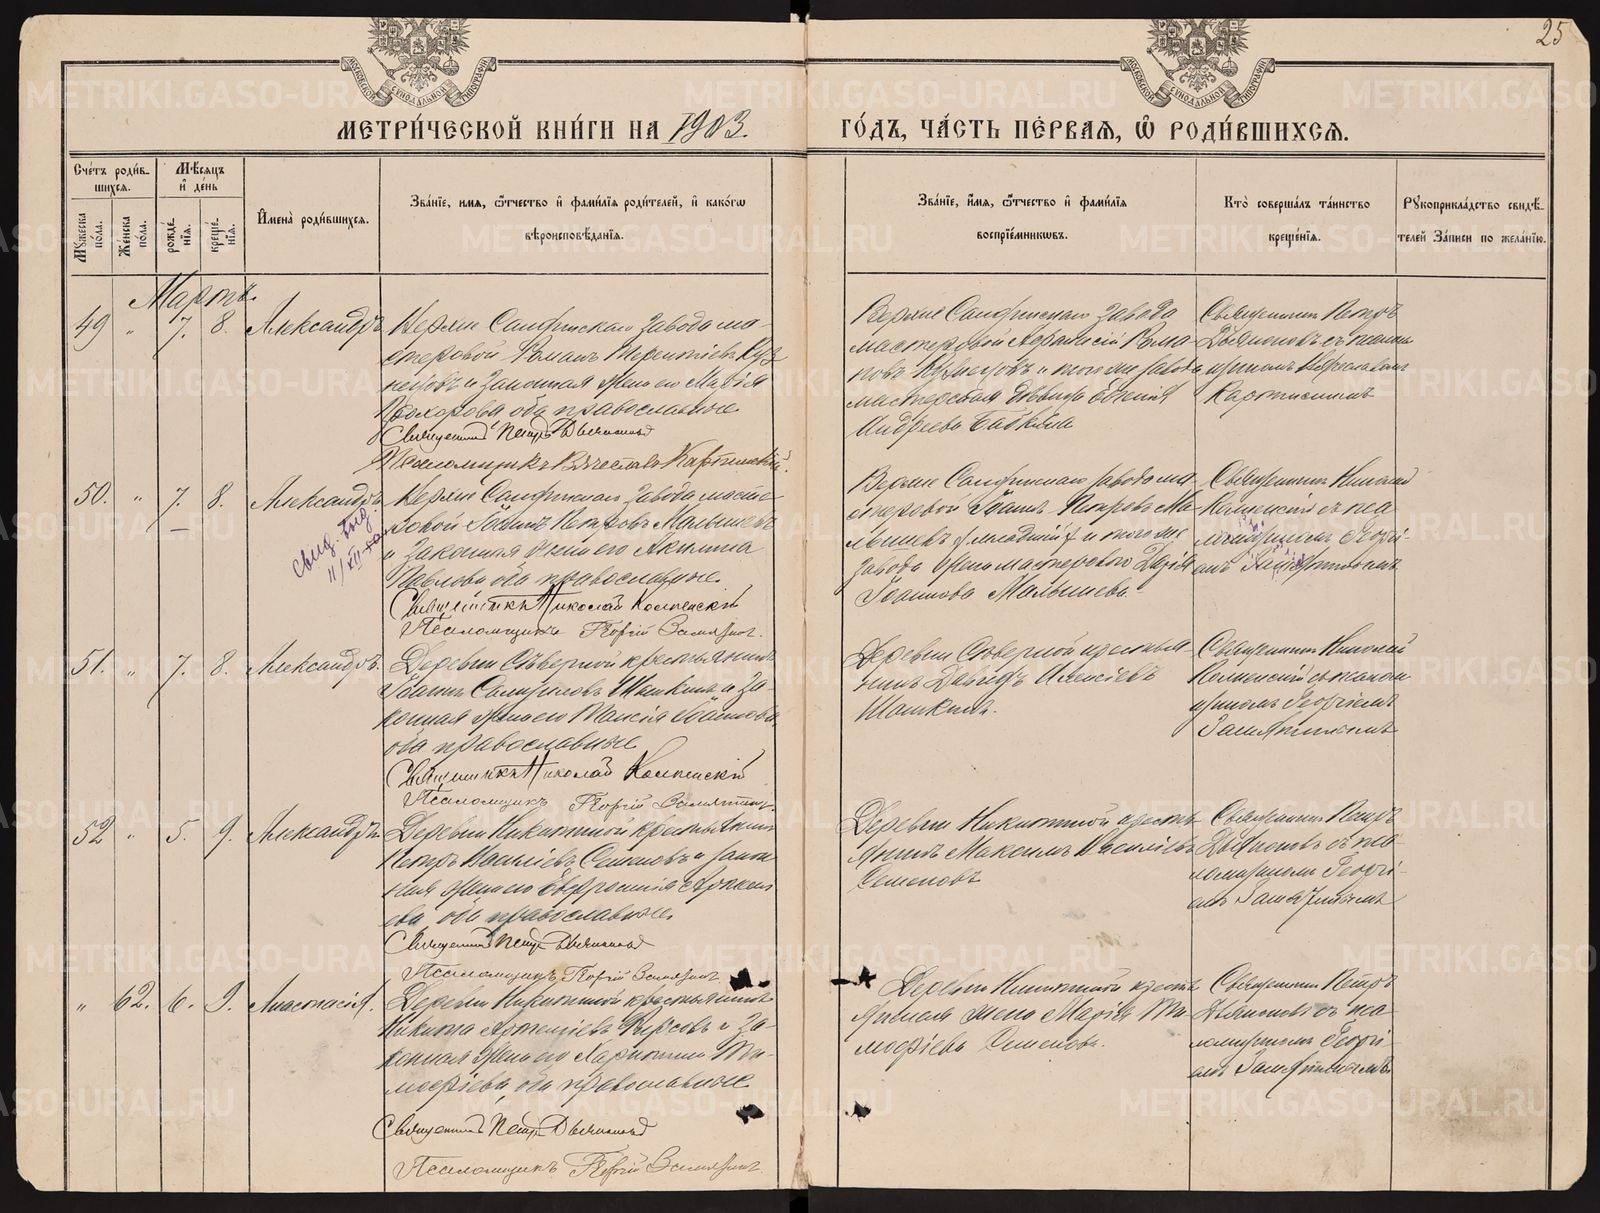 25
МОСКОВСКОЙ СѴНОДАЛЬНОЙ ТИПОГРАФІИ
МОСКОВСКОЙ СѴНОДАЛЬНОЙ ТИПОГРАФІИ
МЕТРИ́ЧЕСКОЙ КНИ́ГИ НА 1903.
ГО́ДЪ, ЧА́СТЬ ПЕ́РВАѦ, Ѡ҆ РОДИ́ВШИХСѦ.
Сче́тъ роди́в-
шихся.
Мѣ́сяцъ
и҆ де́нь
Мꙋжеска по́ла.
Же́нска по́ла.
рожде́-
нїѧ.
креще́-
нїѧ.
И҆мена̀ роди́вшихсѧ.
Зва́нїе, имя, ѻ҆́тчество и҆ фами́лїѧ роди́телей, и҆ како́гѡ
вѣроисповѣ́данїѧ.
Зва́нїе, и҆́мѧ, ѻ҆́тчество и҆ фами́лїѧ
воспрїе́мникѡвъ.
Кто̀ соверша́лъ та́инство
креще́нїѧ.
Рꙋкоприкла́дство свидѣ́-
телей за́писи по жела́нїю.
Мартъ.
49 " 7. 8. Александръ
Верхне Салдинскаго завода ма-
стеровой Романъ Терентіевъ Куз
нецовъ и законная жена его Марія
Прохорова оба православные
Священникъ Петръ Дьяконовъ
Псаломщикъ Вячеславъ
Верхне Салдинскаго завода
мастеровой Афанасій Рома
новъ Кузнецовъ и того же завода
мастерская дѣвица Евгенія
Андреева Бабкина
Священникъ Петръ
Дьяконовъ съ псалом
щикомъ Вячеславомъ
50. " 7. 8. Александръ
свид. выд.
11/XII
Верхне Салдинскаго завода масте
ровой Іоаннъ Петровъ Малышевъ
и законная жена его Акилина
Павлова оба православные.
Священникъ Николай
Псаломщикъ Георгій Замятин
Верхне Салдинскаго завода ма
стеровой Іоаннъ Петровъ Ма
лышевъ младшій и того же
завода жена мастероваго Дарія
Іоаннова Малышева.
Священникъ Николай
съ пса
ломщикомъ Георгі-
емъ Замятинымъ
51. " 7. 8. Александръ.
Деревни Сѣверной крестьянинъ
Іоаннъ Самуиловъ Шашкинъ и за-
конная жена его Таисія Іоаннова,
оба православные
Священникъ Николай
Псаломщикъ Георгій Замятин.
Деревни Сѣверной крестья
нинъ Давидъ Алексіевъ
Шашкинъ.
Священникъ Николай
съ псалом
щикомъ Георгіемъ
Замятинымъ
52 " 5. 9. Александръ.
Деревни Никитиной крестьянинъ
Петръ Семеновъ и закон
ная жена его Евфросинія
ева оба православные.
Священникъ Петръ Дьяконовъ
Псаломщикъ Георгій Замятин
Деревни Никитиной кресть
янинъ Максимъ Василіевъ
Семеновъ
Священникъ Петръ
Дьяконовъ съ пса
ломщикомъ Георгі-
емъ Замятинымъ
" 62. 6. 9. Анастасія.
Деревни Никитиной крестьянинъ
Никита Артеміевъ Фирсовъ и за-
конная жена его Харитина Ти-
мофіева, оба православные
Священникъ Петръ Дьяконовъ
Псаломщикъ Георгій Замятин.
Деревни Никитиной кресть
янская жена Марія Ти-
мофіева Семенова.
Священникъ Петръ
Дьяконовъ съ пса
ломщикомъ Георгі-
емъ Замятинымъ
METRIKI.GASO-URAL.RU